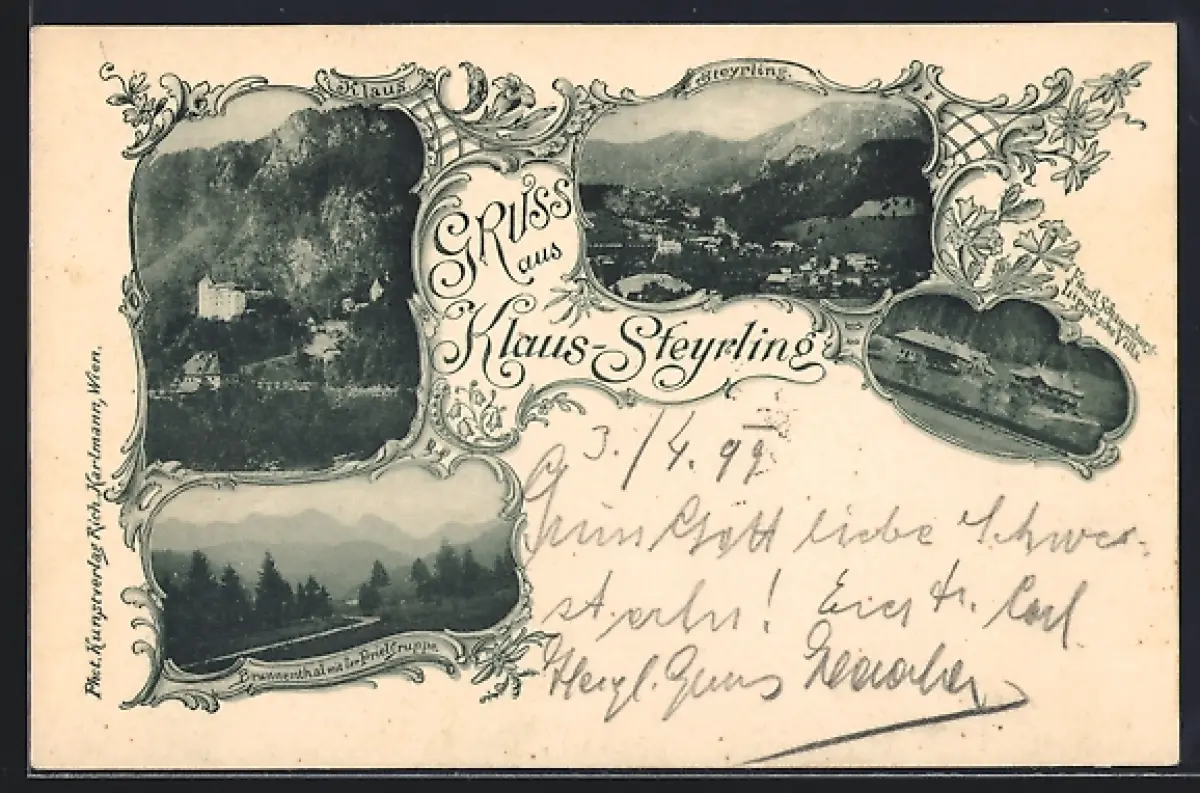 Klaus.
Steyrling.
GRUSS
aus
Klaus-Steyrling
Fürst Schaumburg-
Lippe'sche Villa.
Brunnenthal mit der Prielgruppe
Phot. Kunstverlag Rich. Karlmann, Wien.
3./4. 99
Grüss Gott liebe Schwe-
sterln! Carl
Herzl. Gruss